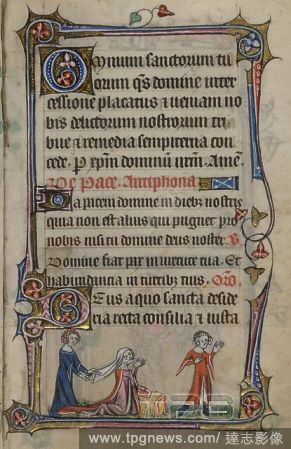 Omnium sanctorum tu
orum qs domine inter
cessione placatus & veniam no
bis delictorum nostrorum tri
bue & remedia sempiterna con
cede. p xpm dominum nrm. Amē.
De Pace. Antiphona
Da pacem domine in dieb; nostris
quia non est alius qui pugnet pro
nobis nisi tu domine deus noster. V.
Domine fiat pax in virtute tua. Et
habundancia in turrib; tuis. Oro.
Deus a quo sancta deside
ria recta consilia & iusta
123
www.tpgnews.com / 達志影像